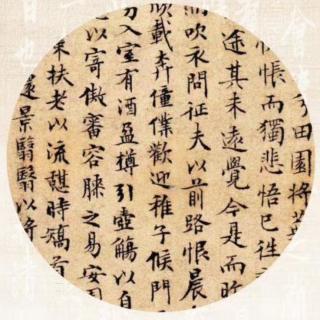 兮田園將蕪
悵而獨悲悟已往
途其未遠覺今是而昨
而吹衣問征夫以前路恨晨
欣載奔僮僕歡迎稚子候門
入室有酒盈樽引壺觴以自
以寄傲審容膝之易安
策扶老以流憩時矯首
還景翳翳以將